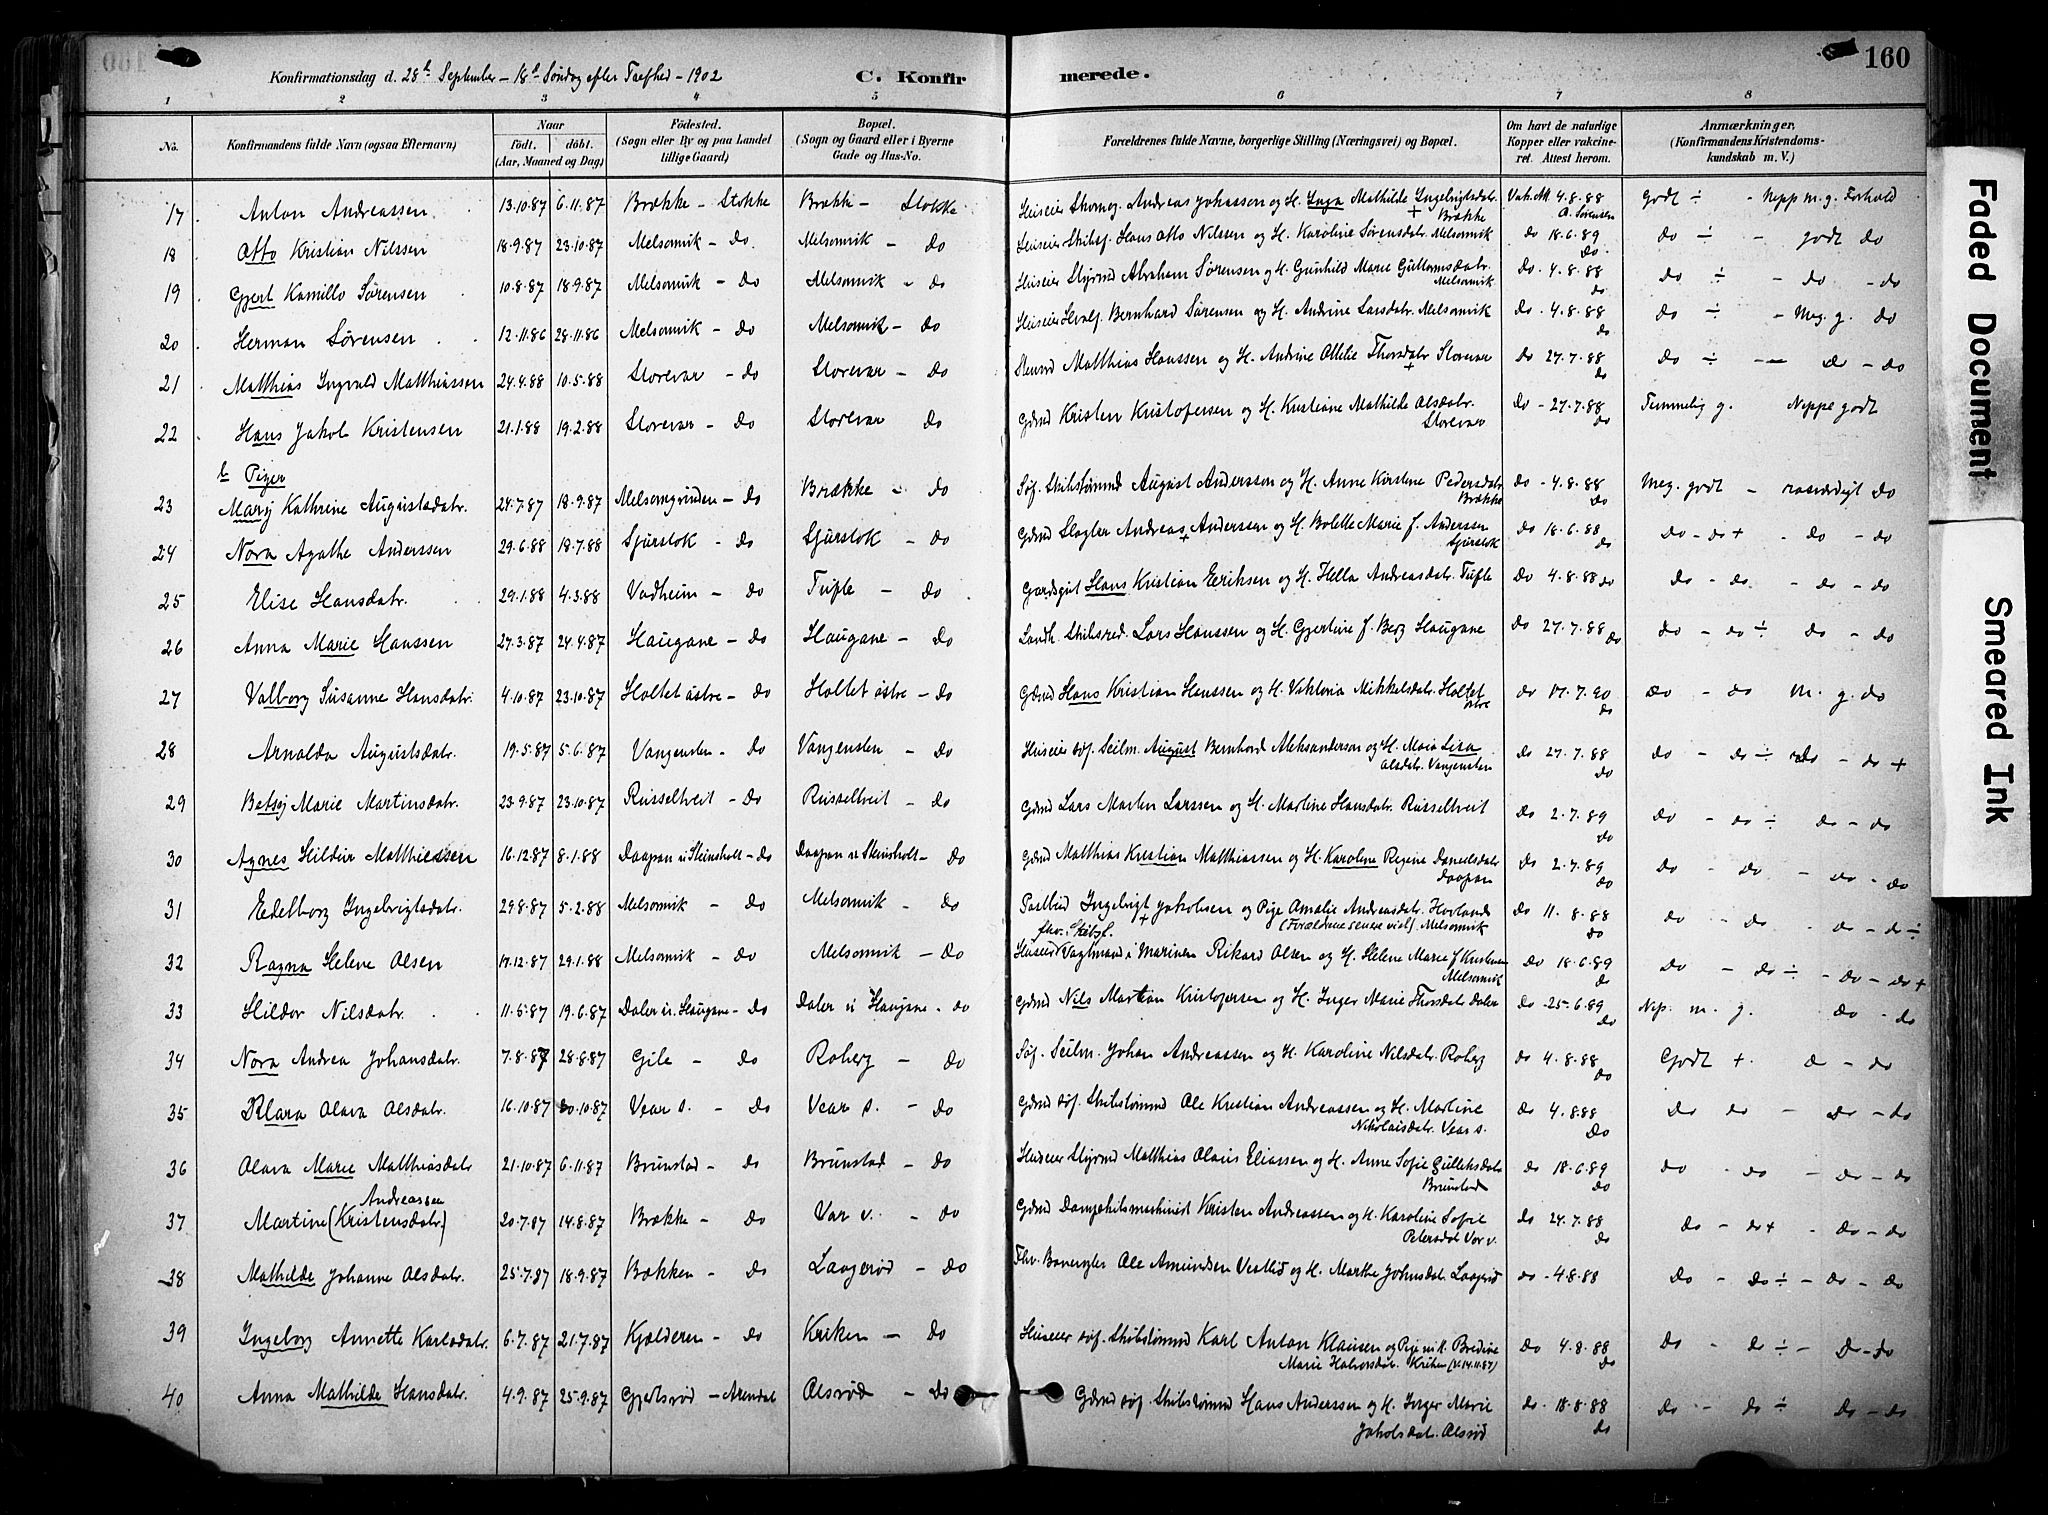 160
Konfirmationsdag d. 28de September - 18de Søndag efter Trefhed - 1902 C. Konfirmerede.
1 2 3 4 5 6 7 8
No. Konfirmandens fulde Navn (ogsaa Efternavn) Naar født. døbt. (Aar, Maaned og Dag) Fødested. (Sogn eller By og paa Landet tillige Gaard) Bopæl. (Sogn og Gaard eller i Byerne Gade og Hus-No. Forældrenes fulde Navne, borgerlige Stilling (Næringsvei) og Bopæl. Om havt de naturlige Kopper eller vakcineret. Attest herom. Anmærkninger. (Konfirmandens Kristendomskundskab m. V.)
17 Anton Andreassen 13.10.87 6.11.87 Brække - Stokke Brække - Stokke Huseier Andreas Johassen og H. Inga Mathilde Ingebrigtsdatr. Brække Vak. Att. 4.8.88 A. Sørensen Godt ÷ - Nepp m. g. Forhold
18 Otto Kristian Nilssen 18.9.87 23.10.87 Melsomvik - do Melsomvik - do Huseier Skibsf. Hans Otto Nilssen og H. Karoline Sørensdatr. Melsomvik do 18.6.89 do do ÷ - godt do
19 Gjert Kamillo Sørensen 10.8.87 18.9.87 Melsomvik - do Melsomvik - do Huseier Styrmd Abraham Sørensen og H. Gunhild Marie Guttormsdatr. Melsomvik do 4.8.88 do do ÷ - do - do
20 Herman Sørensen 12.11.86 28.11.86 Melsomvik - do Melsomvik - do Huseier Bernhard Sørensen og H. Andrine Larsdatr. Melsomvik do 4.8.88 do do ÷ - Meg. g. do
21 Matthias Ingvald Matthiassen 24.4.88 10.5.88 Storevar - do Storevar - do Matthias Hanssen og H. Andrine Ottelie Thorsdatr Storevar do 27.7.88 do do ÷ - do - do
22 Hans Jakob Kristensen 21.1.88 19.2.88 Storevar - do Storevar do Gdmd Kristen Kristofersen og H. Kristiane Mathilde Olsdatr. Storevar do - 27.7.88 do Temmelig g. Neppe godt
b Piger
23 Mary Kathrine Augustsdatr. 24.7.87 18.9.87 Melsomgrinden - do Brække - do Søf. Skibstømmd August Anderssen og H. Anne Kirstine Pedersdatr Brække do - 4.8.88 do Meg. godt - rosværdigt do
24 Nora Agathe Anderssen 29.6.88 18.7.88 Sjursstok - do Sjurstok - do Gdmd Slagter Andreas Anderssen og H. Bolette Marie f. Anderssen Sjurstok do 18.6.88 do do - do + - do - do
25 Elise Hansdatr. 29.1.88 4.3.88 Vadheim - do Tufte - do Gaardsgut Hans Kristian Eriksen og H. Hella Andreasdatr. Tufte do 4.8.88 do do - do - do - do
26 Anna Marie Hanssen 27.3.87 24.4.87 Haugane - do Haugane - do Landh. Skibsred. Lars Hanssen og H. Gjertine f. Berg Haugane do 27.7.88 do do - do ÷ do - do
27 Valborg Susanne Hansdatr. 4.10.87 23.10.87 Holtet østre - do Holtet østre - do Gdmd Hans Kristian Hanssen og H. Viktoria Mikkelsdatr. Holtet østre do 17.7.90 do do - do M. g. do
28 Arnalda Augustsdatr. 19.5.87 5.6.87 Vangensten - do Vangensten - do Huseier søf. Seilm. August Bernhard Aleksandersen og H. Maia Lisa Olsdatr. Vangensten do 27.7.88 do do - do ÷ do - do +
29 Betsej Marie Martinsdatr. 23.9.87 23.10.87 Russeltveit - do Russeltveit - do Gdmd Lars Marten Larssen og H. Martine Hansdatr. Russeltveit do 2.7.89 do do - do ÷ do - do
30 Agnes Hildur Matthiessen 16.12.87 8.1.88 Daapan u Steinsholt - do Daapan u Steinsholt - do Gdmd Matthias Kristian Matthiassen og H. Karoline Regine Danielsdatr Daapan do 2.7.89 do do - do - do - do
31 Edelborg Ingebrigtsdatr. 29.8.87 5.2.88 Melsomvik - do Melsomvik - do Ingebrigt Jakobsen og Pige Amalie Andreasdatr. Hovlands (Forældrene senere viet) Melsomvik do 11.8.88 do do - do - do - do ÷
32 Ragna Helene Olsen 17.12.87 29.1.88 Melsomvik - do Melsomvik - do fhv. Skibsf. Huseier (Vagtmand i Marinen Rikard Olsen og H. Helene Marie f Kristensen Melsomvik do 18.6.89 do do - do ÷ - do - do +
33 Hildor Nilsdatr. 11.5.87 19.6.87 Daler u. Haugane - do Daler u Haugane - do Gdmd Nils Martian Kristofersen og H. Inger Marie Thorsdatr Daler do - 25.6.89 do Nep. m. g. do - do
34 Nora Andrea Johansdatr. 7.8.87 28.8.87 Gile - do Roberg - do Søf. Seilm. Johan Andreassen og H. Karoline Nilsdatr. Roberg do 4.8.88 do Godt + do - do
35 Klara Olava Olsdatr. 16.10.87 30.10.87 Vear s. - do Vear s. - do Gdmd søf. Skibstømmd Ole Kristian Andreassen og H. Martine Nikolaisdatr. Vear s. do 4.8.88 do do do - do - do
36 Olava Marie Matthiasdatr 21.10.87 6.11.87 Brunstad - do Brunstad - do Huseier Styrmd Matthias Olaus Eliassen og H. Anne Sofie Gulleksdatr Brunstad do 18.6.89 do do - do - do - do
37 Martine (Kristensdatr) Andreassen 20.7.87 14.8.87 Brække - do Vear v. - do Gdmd Dampskibsmaskinist Kristen Andreassen og H. Karoline Sofie Petersdatr Vear v. do 24.7.88 do do - do + - do - do
38 Mathilde Johanne Olsdatr. 25.7.87 18.9.87 Bækken - do Laagerød - do Fhv. Banevogter Ole Amundsen Vestlid og H. Marthe Johnsdatr. Laagerød do - 4.8.88 do - do ÷ - do - do
39 Ingeborg Annette Karlsdatr. 6.7.87 21.7.87 Kjælderen - do Kriken - do Huseier søf. Skibstømmd Karl Anton Klausen og Pige nu H. Bredine Marie Halvorsdatr. Kriken (v. 14.11.87) do 4.8.88 do do - do ÷ - do - do
40 Anna Mathilde Hansdatr. 4.9.87 25.9.87 Gjertsrød - Arendal Olsrød - do Gdmd søf. Skibstømmd Hans Anderssen og H. Inger Marie Jakobsdatr. Olsrød do - 18.8.88 do do - do ÷ do - do
Faded Document
Smeared Ink